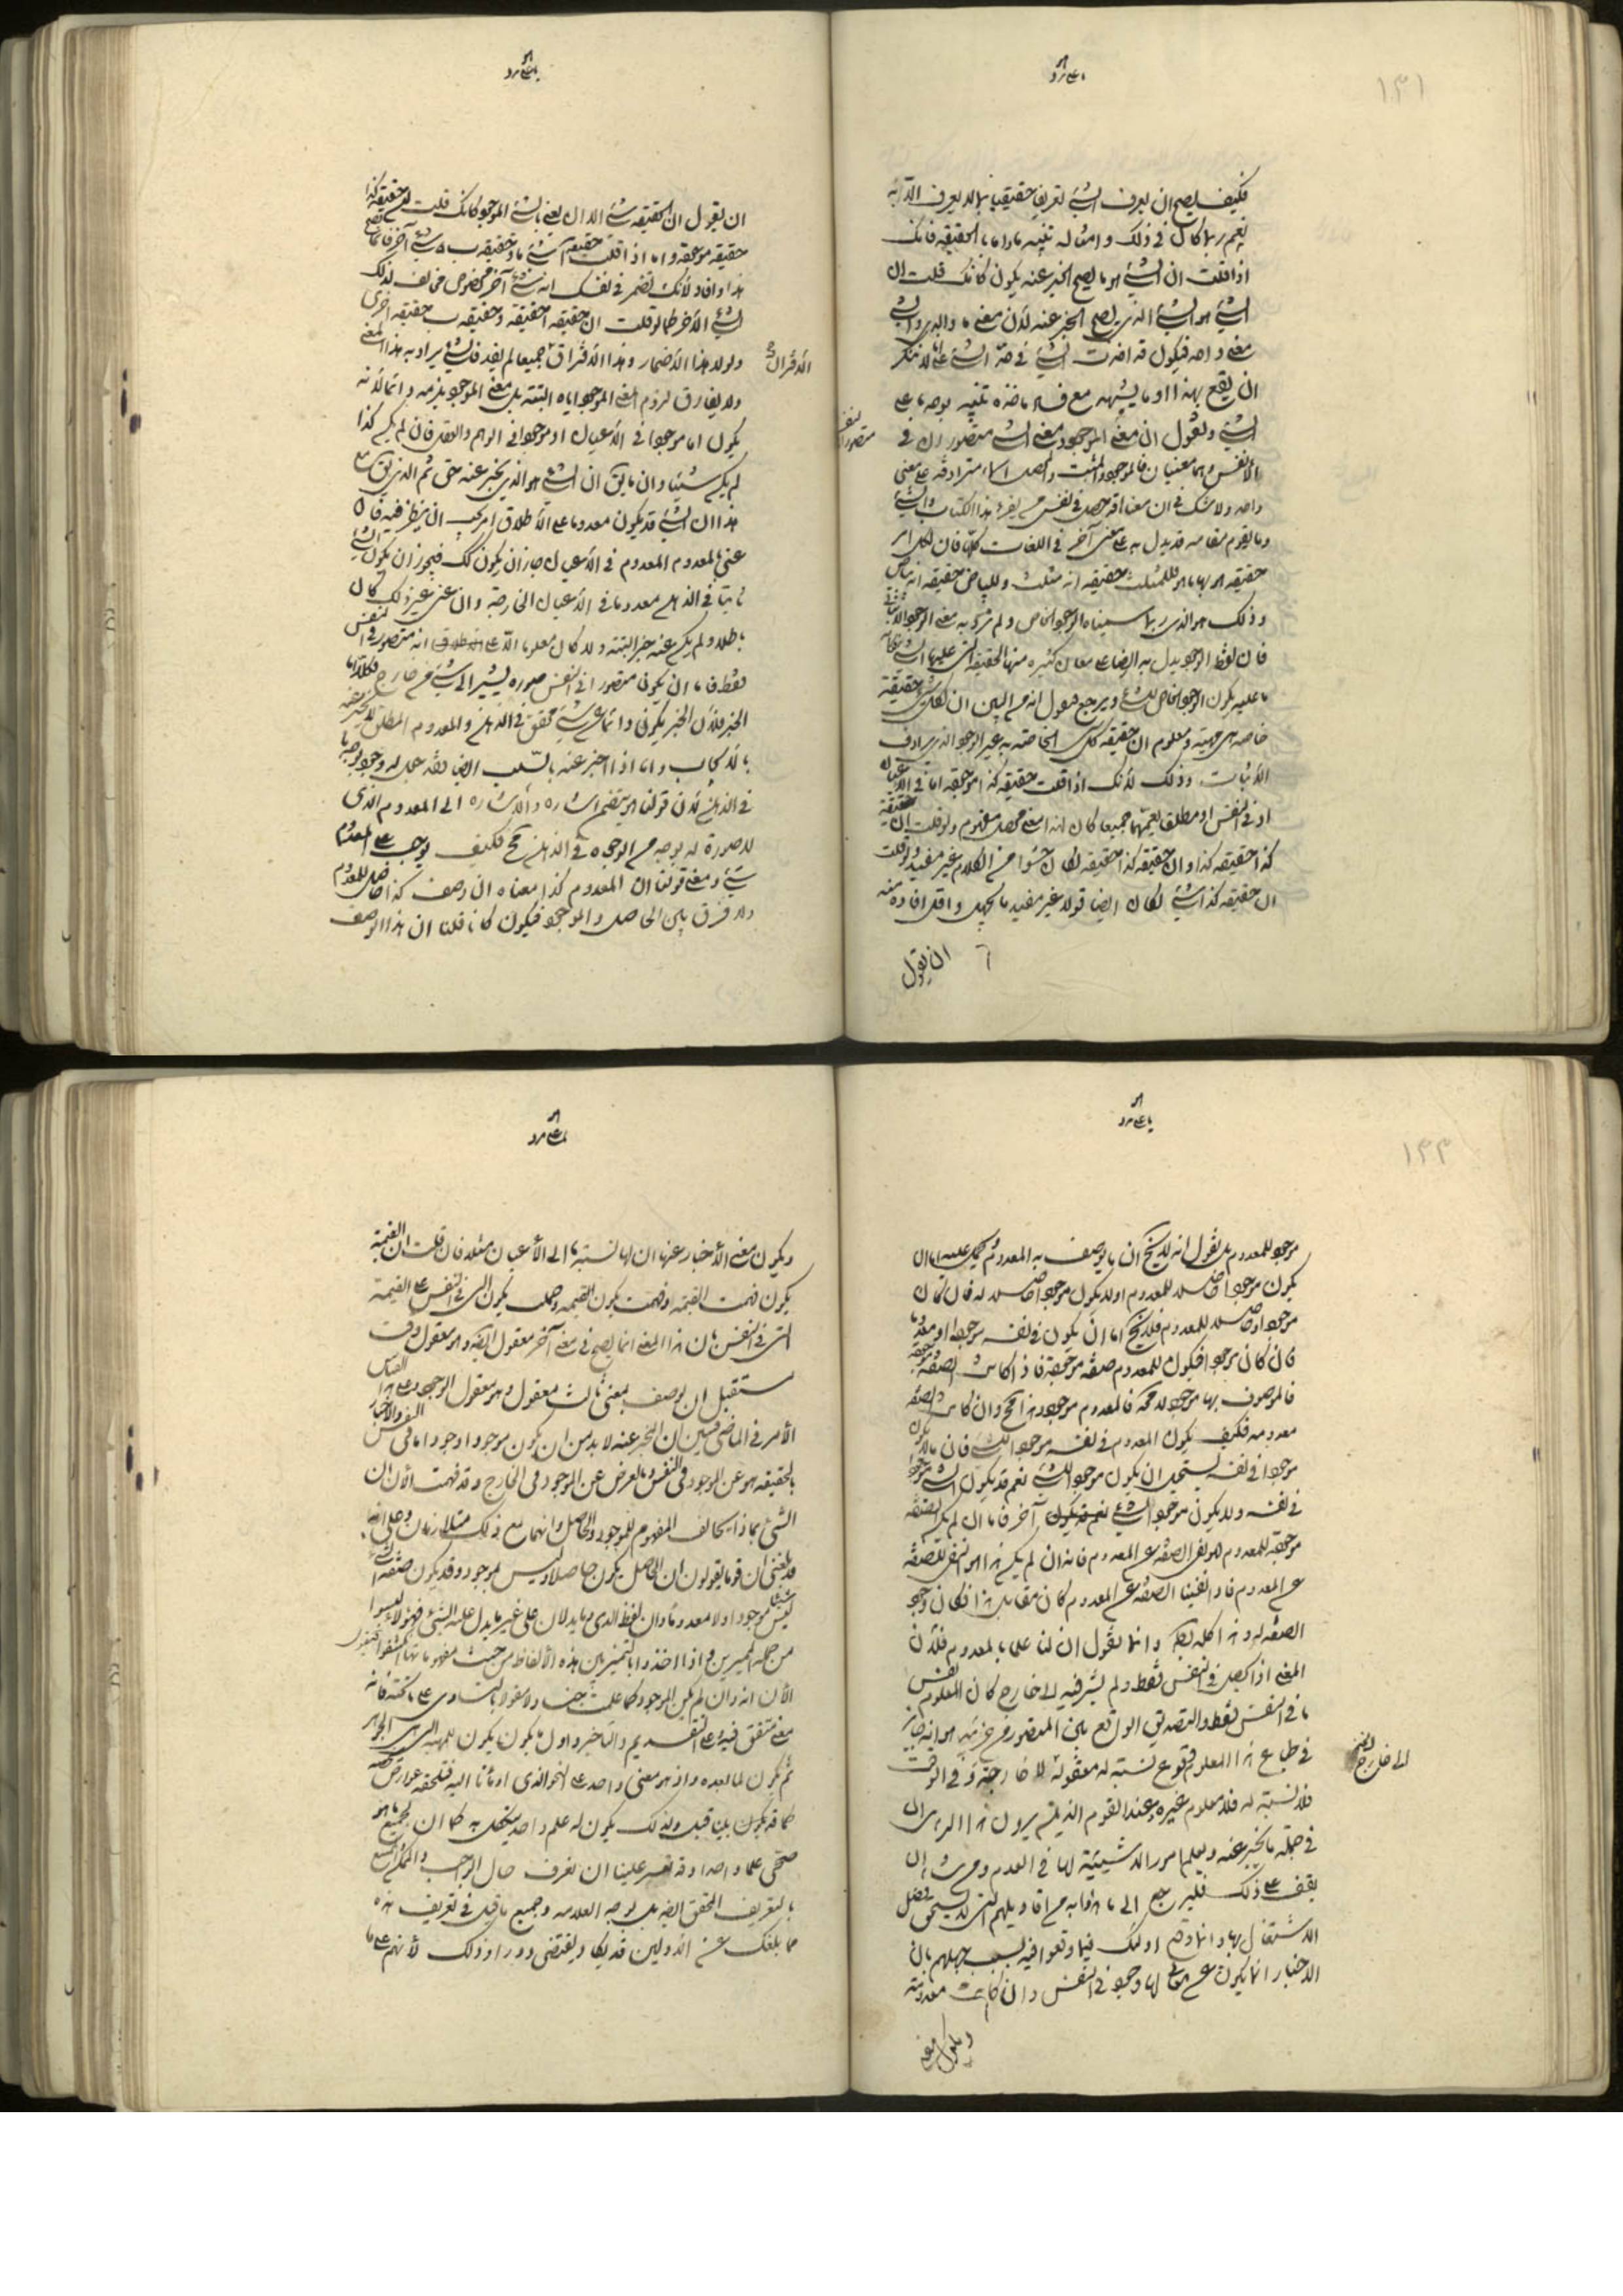 ١٣١
فكيف يصح ان يعرف الشئ تعريفا حقيقيا بما لا يعرف الا به
نعم ربما كان فى ذلك وامثاله تنبيه ما واما بالحقيقة فانك
اذا قلت ان الشئ هو ما يصح الخبر عنه يكون كانك قلت ان
الشئ هو الشئ الذى يصح الخبر عنه لأن معنى ما والذى والشئ
معنى واحد فيكون قد اخذت الشئ فى حد الشئ على انا لا ننكر
ان يقع بهذا او ما يشبهه مع فساد ماخذه تنبيه بوجه ما على
الشئ ونقول ان معنى الموجود ومعنى الشئ متصوران فى
الانفس وهما معنيان فالموجود والمثبت والمحصل اسماء مترادفة على معنى
واحد ولا شك فى ان معناها قد حصل فى نفس من يقرء هذا الكتاب والشئ
وما يقوم مقامه قد يدل به على معنى آخر فى اللغات كلها فان لكل امر
حقيقة هو بها ما هو فللمثلث حقيقة انه مثلث وللبياض حقيقة انه بياض
وذلك هو الذى ربما سميناه الوجود الخاص ولم نرد به معنى الوجود الاثباتى
فان لفظ الوجود يدل به ايضا على معان كثيرة منها الحقيقة التى عليها الشئ فكانه
ما عليه يكون الوجود الخاص للشئ ونرجع فنقول انه من البين ان لكل شئ حقيقة
خاصة هى مهيته ومعلوم ان حقيقة كل شئ الخاصة به غير الوجود الذى يرادف
الاثبات وذلك لأنك اذا قلت حقيقة كذا موجودة اما فى الاعيان
او فى الانفس او مطلقا يعمهما جميعا كان لهذا معنى محصل مفهوم ولو قلت ان حقيقة
كذا حقيقة كذا او ان حقيقة كذا حقيقة لكان حشوا من الكلام غير مفيد ولو قلت
ان حقيقة كذا شئ لكان ايضا قولا غير مفيد ما يجهل واقل افادة منه
ان يقول
ان يقول ان الحقيقة شئ الا ان يعنى بالشئ الموجود كانك قلت حقيقة كذا
حقيقة موجودة واما اذا قلت حقيقة آ شئ ما وحقيقة ب شئ آخر فانما صح
هذا وافاد لأنك تضمر فى نفسك انه شئ آخر مخصوص مخالف لذلك
الشئ الآخر كما لو قلت ان حقيقة آ حقيقة وحقيقة ب حقيقة اخرى
ولولا هذا الاضمار وهذا الاقتران جميعا لم يفد فالشئ يراد به هذا المعنى
الاقتران
ولا يفارق لزوم معنى الموجود اياه البتة بل معنى الموجود يلزمه دائما لأنه
يكون اما موجودا فى الأعيان او موجودا فى الوهم والعقل فان لم يكن كذا
لم يكن شيئا وان ما يق ان الشئ هو الذى يخبر عنه حق ثم الذى يق مع
هذا ان الشئ قد يكون معدوما على الاطلاق امر يجب ان ينظر فيه فان
عنى بالمعدوم المعدوم فى الأعيان جاز ان يكون كك فيجوز ان يكون الشئ
ثابتا فى الذهن معدوما فى الأعيان الخارجة وان عنى غير ذلك كان
باطلا ولم يكن عنه خبر البتة ولا كان معلوما الا على انه متصور فى النفس
فقط فاما ان يكون متصورا فى النفس صورة يشير الى شئ من خارج فكلا اما
الخبر فلأن الخبر يكون دائما عن شئ محقق فى الذهن والمعدوم المطلق لا يخبر عنه
بالايجاب واما اذا اخبر عنه بالسلب ايضا فقد جعل له وجود بوجه ما
فى الذهن لأن قولنا هو يتضمن اشارة والاشارة الى المعدوم الذى
لا صورة له بوجه من الوجوه فى الذهن مح فكيف يوجب على المعدوم
شئ ومعنى قولنا ان المعدوم كذا معناه ان وصف كذا حاصل للمعدوم
ولا فرق بين الحاصل والموجود فيكون كانا قلنا ان هذا الوصف
١٣٢
موجود للمعدوم بل نقول انه لا يخ ان ما يوصف به المعدوم ويحمل عليه اما ان
يكون موجودا حاصلا للمعدوم او لا يكون موجودا حاصلا له فان كان
موجودا وحاصلا للمعدوم فلا يخ اما ان يكون فى نفسه موجودا او معدوما
فان كان موجودا فيكون للمعدوم صفة موجودة فاذا كانت الصفة موجودة
فالموصوف بها موجود لا محة فالمعدوم موجود هذا مح وان كانت الصفة
معدومة فكيف يكون المعدوم فى نفسه موجودا لشئ فان ما لا يكون
موجودا فى نفسه يستحيل ان يكون موجودا لشئ نعم قد يكون الشئ موجودا
فى نفسه ولا يكون موجودا لشئ آخر فاما ان لم يكن الصفة
موجودة للمعدوم فهو نفى الصفة عن المعدوم فانه ان لم يكن هذا هو النفى للصفة
عن المعدوم فاذا نفينا الصفة عن المعدوم كان مقابل هذا فكان وجود
الصفة له وهذا كله بط وانما نقول ان لنا علما بالمعدوم فلأن
المعنى اذا تحصل فى النفس فقط ولم يشر فيه الى خارج كان المعلوم نفس
ما فى النفس فقط والتصديق الواقع بين المتصور من جزئيه هو انه جائز
فى طباع هذا المعلوم وقوع نسبة له معقولة الى خارج وفى الوقت
فلا نسبة له فلا معلوم غيره وعند القوم الذين يرون هذا الرأى ان
فى جملة ما يخبر عنه ويعلم امورا لا شيئية لها فى العدم ومن شاء ان
يقف على ذلك فليرجع الى ما هذوا به من اقاويلهم التى لا يستحق فضل
الاشتغال بها وانما وقع اولئك فيما وقعوا فيه بسبب جهلهم بان
الاخبار انما يكون عن معان لها وجود فى النفس وان كانت معدومة
ويكون معنى
ويكون معنى الأخبار عنها ان لها نسبة ما الى الأعيان مثلا فان قلت ان القيمة
يكون فهمت القيمة وفهمت يكون وحملت يكون التى فى النفس على القيمة
التى فى النفس بان هذا المعنى انما يصح فى معنى آخر معقول ايضا وهو معقول فى وقت
مستقبل ان يوصف بمعنى ثالث معقول وهو معقول الوجود وعلى هذا القياس
الأمر فى الماضى فبين ان المخبر عنه لا بد من ان يكون موجودا وجودا ما فى النفس والاخبار
بالحقيقة هو عن الموجود فى النفس وبالعرض عن الموجود فى الخارج وقد فهمت الأن ان
الشئ بماذا يخالف المفهوم للموجود والحاصل وانهما مع ذلك متلازمان وعلى انه
قد بلغنى ان قوما يقولون ان الحاصل يكون حاصلا وليس بموجود وقد يكون صفة الشئ
ليس شيئا لا موجودا ولا معدوما وان لفظ الذى وما يدلان على غير ما يدل عليه الشئ فهؤلاء ليسوا
من جملة المميزين واذا اخذوا بالتمييز بين هذه الألفاظ من حيث مفهوماتها انكشفوا فنقول
الأن انه وان لم يكن الموجود كما علمت جنسا ولا مقولا بالتساوى على ما تحته فانه
معنى متفق فيه على التقديم والتاخير واول ما يكون يكون للمهية التى هى الجوهر
ثم يكون لما بعده واذ هو معنى واحد على النحو الذى اومأنا اليه فتلحقه عوارض تخصه
كما قد بينا قبل ولذلك يكون له علم واحد يتكفل به كما ان لجميع ما هو
صحى علما واحدا وقد تعسر علينا ان نعرف حال الواجب والممكن والممتنع
بالتعريف المحقق ايضا بل بوجه العلامة وجميع ما قيل فى تعريف هذه
مما بلغك عن الأولين قد يكاد يقتضى دورا وذلك لأنهم على ما